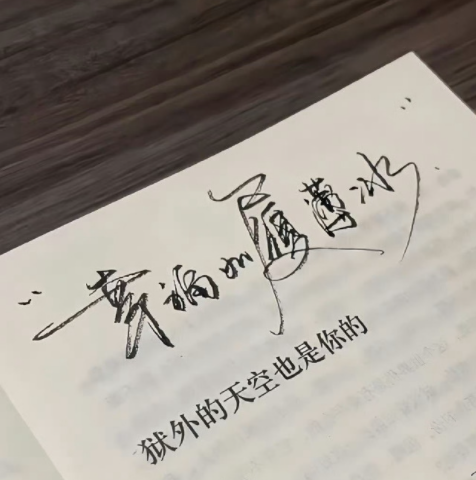 "幸福如履薄冰"
狱外的天空也是你的